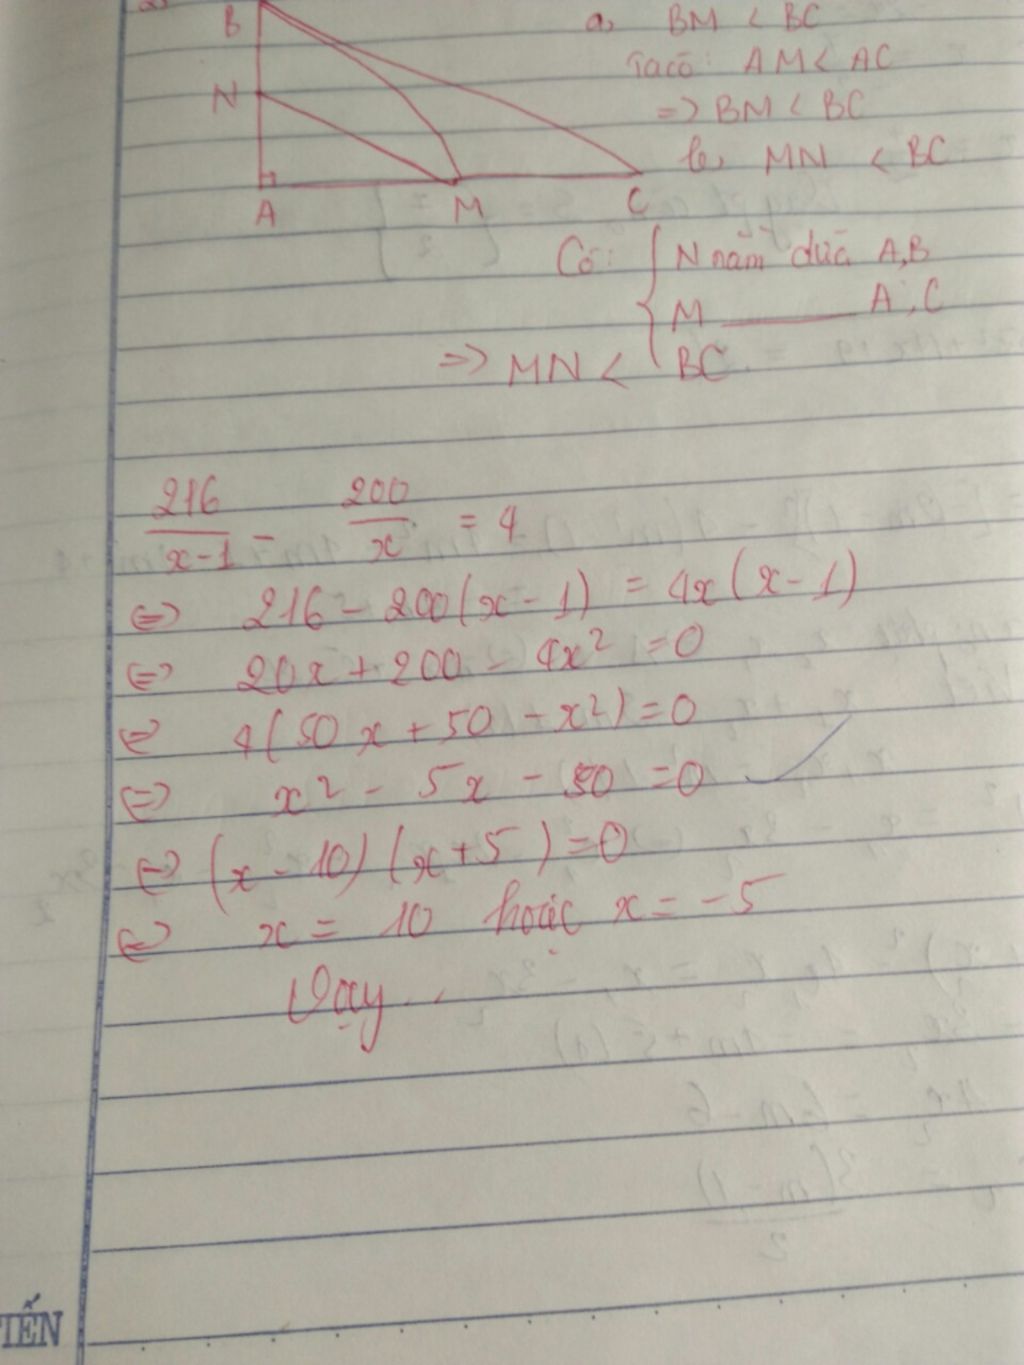 B
N
A M C
a, BM < BC
Ta có: AM < AC
=> BM < BC
b, MN < BC
Có: { N nằm giữa A, B
M ______ A, C
=> MN < BC
216/(x-1) - 200/x = 4
<=> 216 - 200(x-1) = 4x(x-1)
<=> 20x + 200 - 4x² = 0
<=> 4(50x + 50 - x²) = 0
<=> x² - 5x - 50 = 0
<=> (x - 10)(x + 5) = 0
<=> x = 10 hoặc x = -5
Vậy...
TIẾN